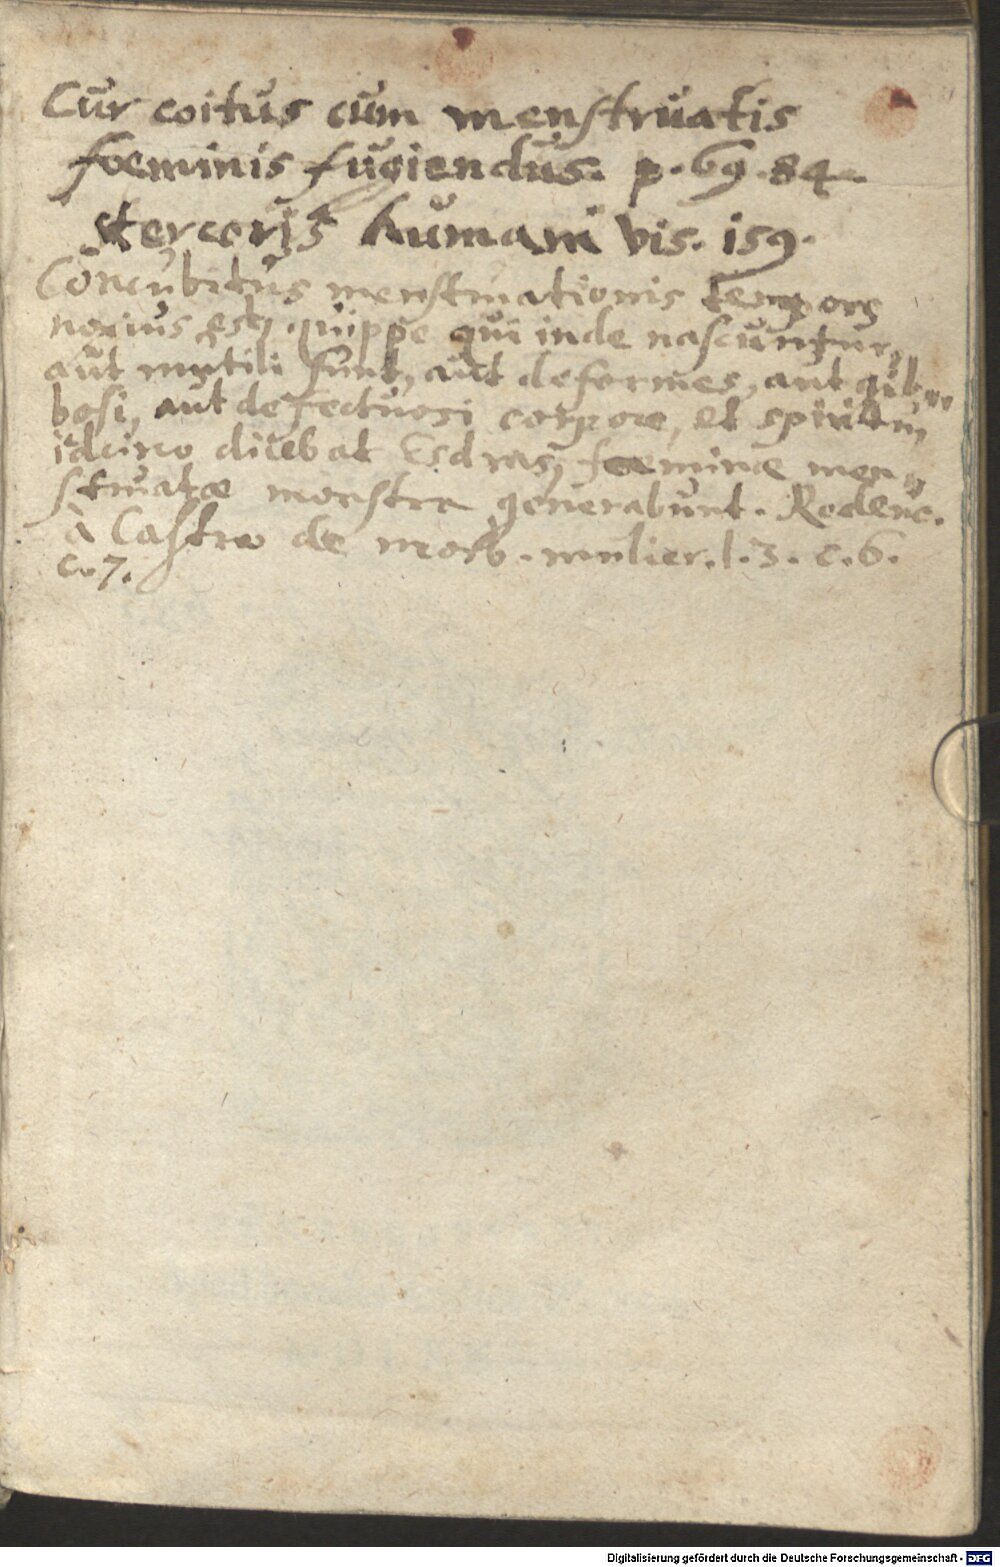 Cur coitus cum menstruatis
foeminis fugiendus. p. 69. 84.
stercoris humani vis. 159.
Concubitus menstruationis tempore
noxius est, quippe qui inde nascuntur,
aut mutili sunt, aut deformes, aut gib-
bosi, aut defectuosi corpore, et spiritu,
idcirco dicebat Esdras, foeminae men-
struatae monstra generabunt. Roderic.
à Castro de morb. mulier. l. 3. c. 6.
c. 7.
Digitalisierung gefördert durch die Deutsche Forschungsgemeinschaft - DFG